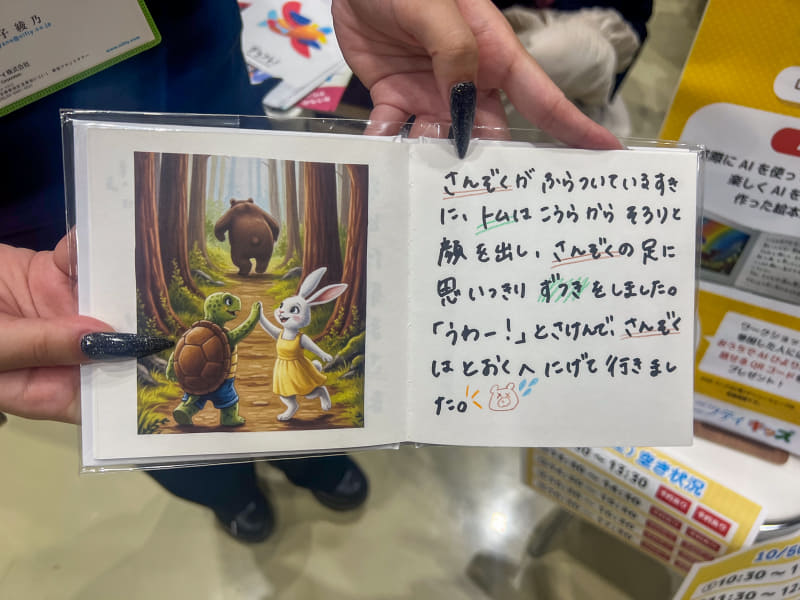 綾乃
www.nifty.co.jp
さんぞくが ふらついているすき
に、トムは こうらから そろりと
顔を出し、さんぞくの足に
思いっきり ずつきをしました。
「うわー！」とさけんで、さんぞく
はとおくへ にげて行きまし
た。
際に AI を使っ
楽しく AI を
作った絵本
ワークショップ
おうちで AI ひより
QR コード
プレゼント！
ニフティ キッズ
空き状況
13:30
10:30〜
11:30〜12: